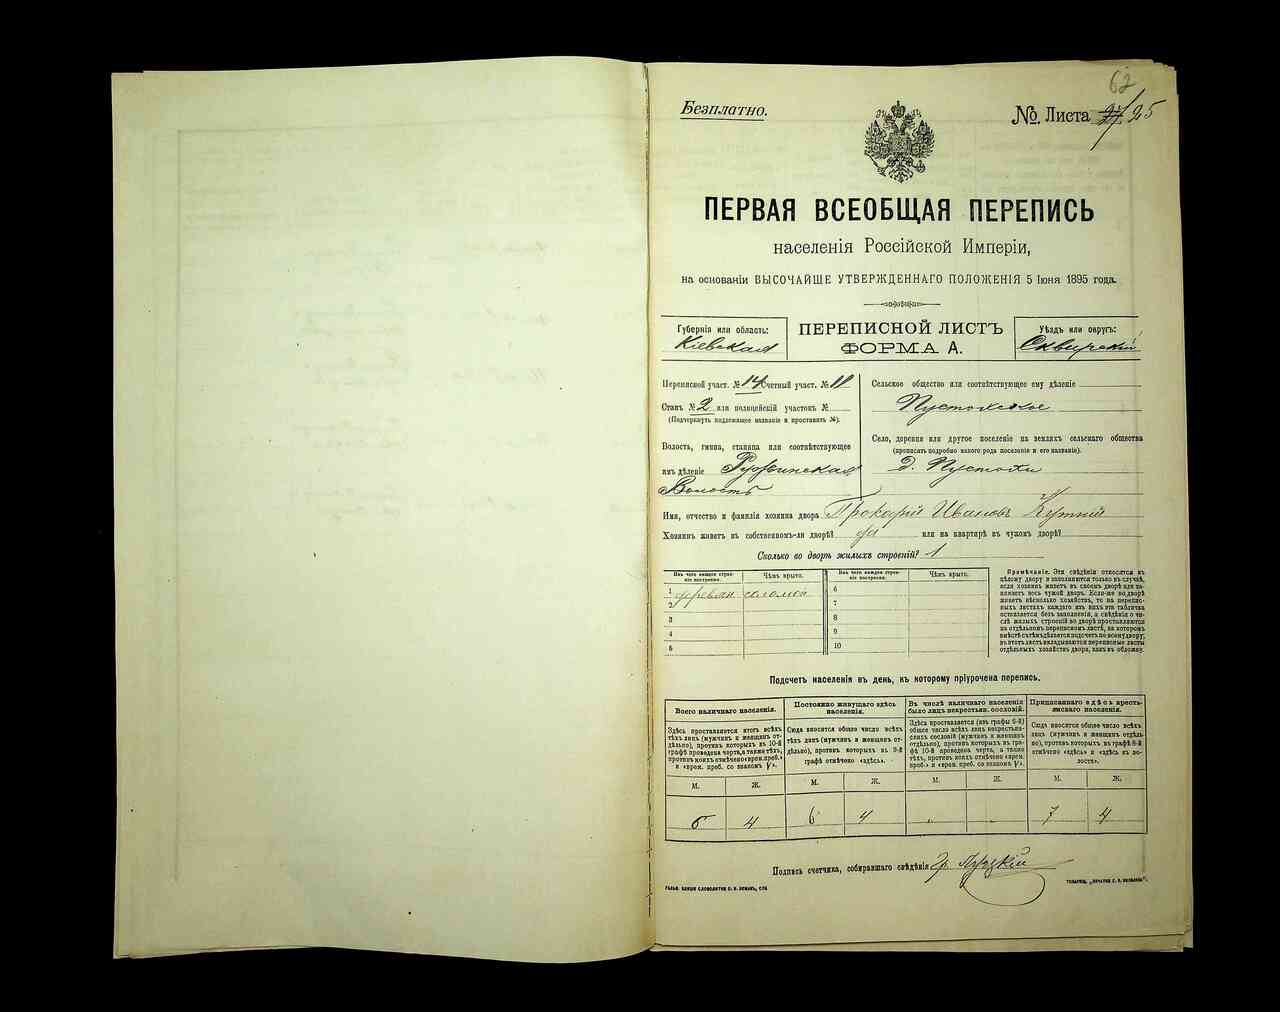 62
Безплатно.
№. Листа 25
ПЕРВАЯ ВСЕОБЩАЯ ПЕРЕПИСЬ
населенія Россійской Имперіи,
на основаніи ВЫСОЧАЙШЕ УТВЕРЖДЕННАГО ПОЛОЖЕНІЯ 5 Іюня 1895 года.
Губернія или область:
Кіевская
ПЕРЕПИСНОЙ ЛИСТЪ
ФОРМА А.
Уѣздъ или округъ:
Сквирскій
Переписной участ. № 14 Счетный участ. № 11
Станъ № 2 или полицейскій участокъ №
(Подчеркнуть подлежащее названіе и проставить №).
Волость, гмина, станица или соотвѣтствующее
имъ дѣленіе Ружинская
Волость
Сельское общество или соотвѣтствующее ему дѣленіе
Село, деревня или другое поселеніе на земляхъ сельскаго общества
(прописать подробно какого рода поселеніе и его названіе).
д. Пустохи
Имя, отчество и фамилія хозяина двора Прокофій Ивановъ
Хозяинъ живетъ въ собственномъ-ли дворѣ? да или на квартирѣ въ чужомъ дворѣ?
Сколько во дворѣ жилыхъ строеній? 1
Изъ чего каждое строеніе построено. Чѣмъ крыто.
1 деревян соломой
2
3
4
5
Изъ чего каждое строеніе построено. Чѣмъ крыто.
6
7
8
9
10
Примѣчаніе. Эти свѣдѣнія относятся къ
цѣлому двору и заполняются только въ случаѣ,
если хозяинъ живетъ въ своемъ дворѣ или занимаетъ
весь чужой дворъ. Если-же во дворѣ
живетъ нѣсколько хозяйствъ, то на переписныхъ
листахъ каждаго изъ нихъ эта табличка
оставляется безъ заполненія, а свѣдѣнія о числѣ
жилыхъ строеній во дворѣ проставляются
на отдѣльномъ переписномъ листѣ, на которомъ
вмѣстѣ съ тѣмъ дѣлается подсчетъ по всему двору;
въ этотъ листъ вкладываются переписные листы
отдѣльныхъ хозяйствъ двора, какъ въ обложку.
Подсчетъ населенія въ день, къ которому пріурочена перепись.
Всего наличнаго населенія.
Здѣсь проставляется итогъ всѣхъ
тѣхъ лицъ (мужчинъ и женщинъ отдѣльно),
противъ которыхъ въ 10-й
графѣ проведена черта, а также тѣхъ,
противъ коихъ отмѣчено «врем. преб.»
и «врем. преб. со знакомъ V».
М. Ж.
6 4
Постоянно живущаго здѣсь
населенія.
Сюда вносится общее число всѣхъ
тѣхъ лицъ (мужчинъ и женщинъ отдѣльно),
противъ которыхъ въ 9-й
графѣ отмѣчено «здѣсь».
М. Ж.
6 4
Въ числѣ наличнаго населенія
было лицъ некрестьян. сословій.
Здѣсь проставляется (изъ графы 6-й)
общее число всѣхъ лицъ некрестьянскихъ
сословій (мужчинъ и женщинъ
отдѣльно), противъ которыхъ въ графѣ
10-й проведена черта, а также
тѣхъ, противъ коихъ отмѣчено «врем.
преб.» и «врем. преб. со знакомъ V».
М. Ж.
Приписаннаго здѣсь крестьянскаго
населенія.
Сюда вносится общее число всѣхъ
лицъ (мужчинъ и женщинъ отдѣльно),
противъ которыхъ въ графѣ 8-й
отмѣчено «здѣсь» и «здѣсь въ волости».
М. Ж.
7 4
Подпись счетчика, собиравшаго свѣдѣнія